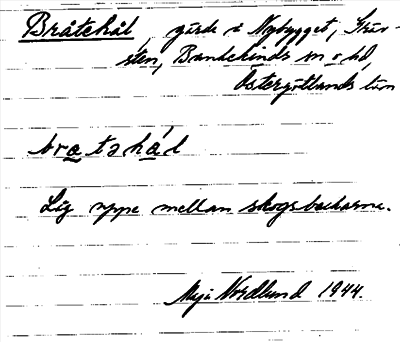 Bråtehål, gärde i Nybygget, Skär-
sten, Bankekinds sn o hd,
Östergötlands län
bratəhál
Lig uppe mellan skogsbackarne.
Maja Nordlund 1944.